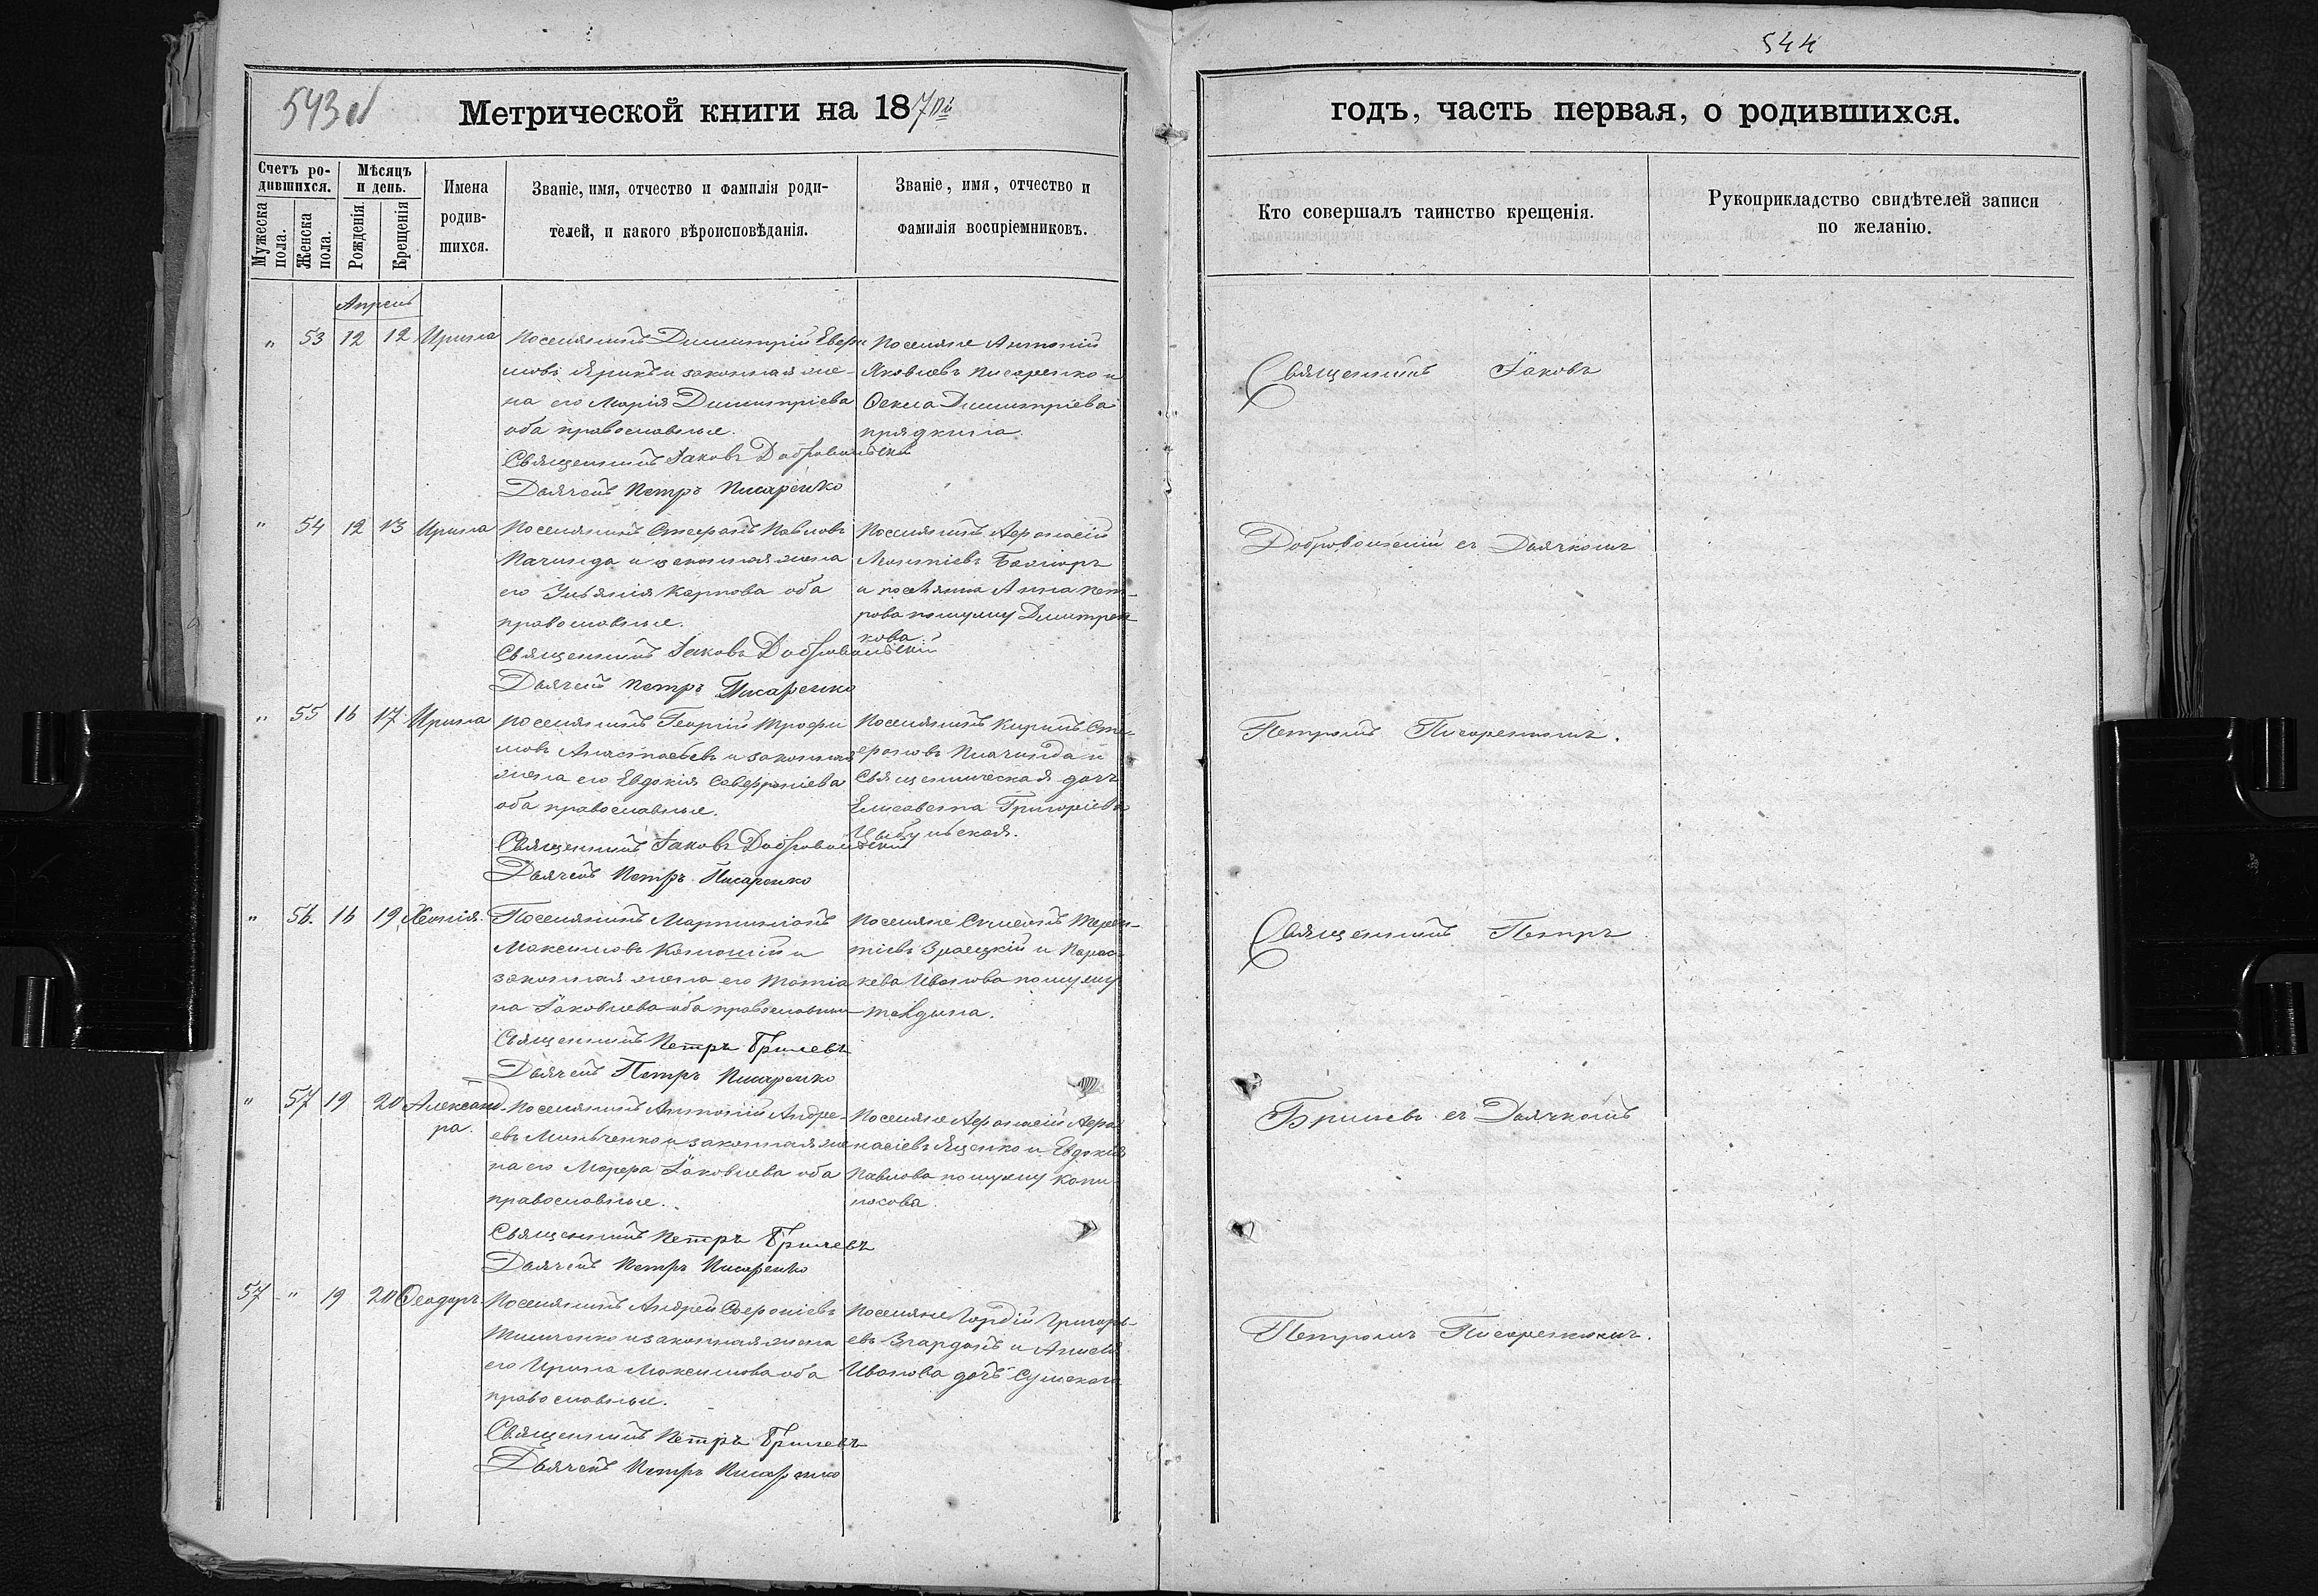 544
543
Метрической книги на 187
годъ, часть первая, о родившихся.
Счетъ ро-
дившихся.
Мужеска пола.
Женска пола.
Мѣсяцъ
и день.
Рожденія.
Крещенія
Имена
родив-
шихся.
Званіе, имя, отчество и фамилія роди-
телей, и какого вѣроисповѣданія.
Званіе, имя, отчество и
фамилія воспріемниковъ.
Кто совершалъ таинство крещенія.
Рукоприкладство свидѣтелей записи
по желанію.
Апрель
" 53 12 12 Ирина
Поселянинъ Димитрій Евфи
мовъ Ярикъ и законная же-
на его Марія Димитріева
оба православные.
Священникъ Іаковъ Добровольскій
Дьячекъ Петръ Писаренко
Поселяне Антоній
Яковлевъ Писаренко и
Өекла Димитріева
прядкина.
Священникъ Іаковъ
" 54 12 13 Ирина
Поселянинъ Стефанъ Павловъ
Пачинда и законная жена
его Ульянія Карпова оба
православные.
Священникъ Іаковъ Добровольскій
Дьячекъ Петръ Писаренко
Поселянинъ Афанасій
и поселянка Анна Пет-
рова по мужу Димитрен
кова.
Добровольскій съ Дьячкомъ
" 55 16 17 Ирина
Поселянинъ Георгій Трофи
мовъ и законная
жена его Евдокія Савфроніева
оба православные.
Священникъ Іаковъ Добровольскій
Дьячекъ Петръ Писаренко
Поселянинъ Кирилъ Сте-
фановъ Пачинда и
Священническая дочь
Елисавета Григоріева
Цыбульская.
Петромъ Писаренкомъ.
" 56. 16 19 Хеонія.
Поселянинъ Мартиніанъ
Максимовъ и
законная жена его Татіа
на Іаковлева оба православные
Священникъ Петръ Гриневъ
Дьячекъ Петръ Писаренко
Поселяне Терен-
тіевъ Зраецкій и Парас-
кева Иванова по мужу
Священникъ Петръ
" 57 19 20 Александ
ра.
Поселянинъ Антоній Андре-
евъ Минченко и законная же
на его Марфа Іаковлева оба
православные.
Священникъ Петръ Гриневъ
Дьячекъ Петръ Писаренко
Поселяне Афанасій Афа
насіевъ Яценко и Евдокія
Павлова по мужу
съ Дьячкомъ
57 " 19 20 Өеодоръ.
Поселянинъ Андрей Софроніевъ
и законная жена
его Ирина Максимова оба
православные.
Священникъ Петръ Гриневъ
Дьячекъ Петръ Писаренко
Поселяне Гордій Григорь-
евъ Згарданъ и
Иванова дочь
Петромъ Писаренкомъ.